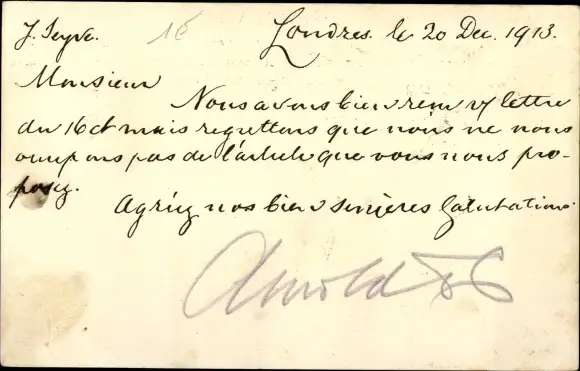 J. Seyve. 16 Londres. le 20 Dec. 1913.
Monsieur
Nous avons bien reçu v/ lettre
du 16 ct mais regrettons que nous ne nous
occupons pas de l'article que vous nous pro-
posez.
Agréez nos bien sincères Salutations.
Arnold